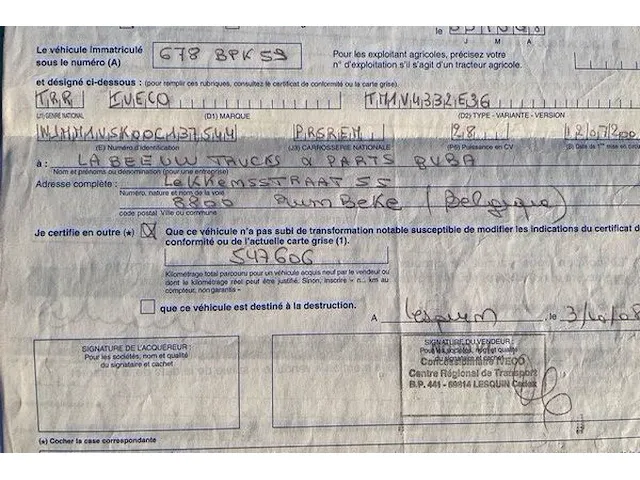 le
J M A
Le véhicule immatriculé
sous le numéro (A)
678 BPK 59
Pour les exploitant agricoles, précisez votre
n° d'exploitation s'il s'agit d'un tracteur agricole.
et désigné ci-dessous : (pour remplir ces rubriques, consultez le certificat de conformité ou la carte grise)
TRR IVECO
(J1) GENRE NATIONAL (D1) MARQUE (D2) TYPE - VARIANTE - VERSION
PRSREM 28
(E) Numéro d'identification (J3) CARROSSERIE NATIONALE (P6) Puissance en CV (B) Date de 1re mise en circ
à : LABEEUW TRUCKS & PARTS BVBA
Nom et prénoms ou dénomination (pour une entreprise)
Adresse complète : LeKKEMSSTRAAT 55
Numéro, nature et nom de la voie
8800 RumBeke (Belgique)
code postal Ville ou commune
Je certifie en outre (*) Que ce véhicule n'a pas subi de transformation notable susceptible de modifier les indications du certificat d
conformité ou de l'actuelle carte grise (1).
547606
Kilométrage total parcouru pour un véhicule acquis neuf par le vendeur ou
dont le kilométrage réel peut être justifié. Sinon, inscrire « n... km au
compteur, non garantis »
que ce véhicule est destiné à la destruction.
A Lesquin , le 3/10/08
SIGNATURE DE L'ACQUEREUR :
Pour les sociétés, nom et qualité
du signataire et cachet
SIGNATURE DU VENDEUR :
Pour les sociétés, nom et qualité
du signataire et cachet
Concessionnaire IVECO
Centre Régional de Transport
B.P. 441 - 59814 LESQUIN Cedex
(*) Cocher la case correspondante